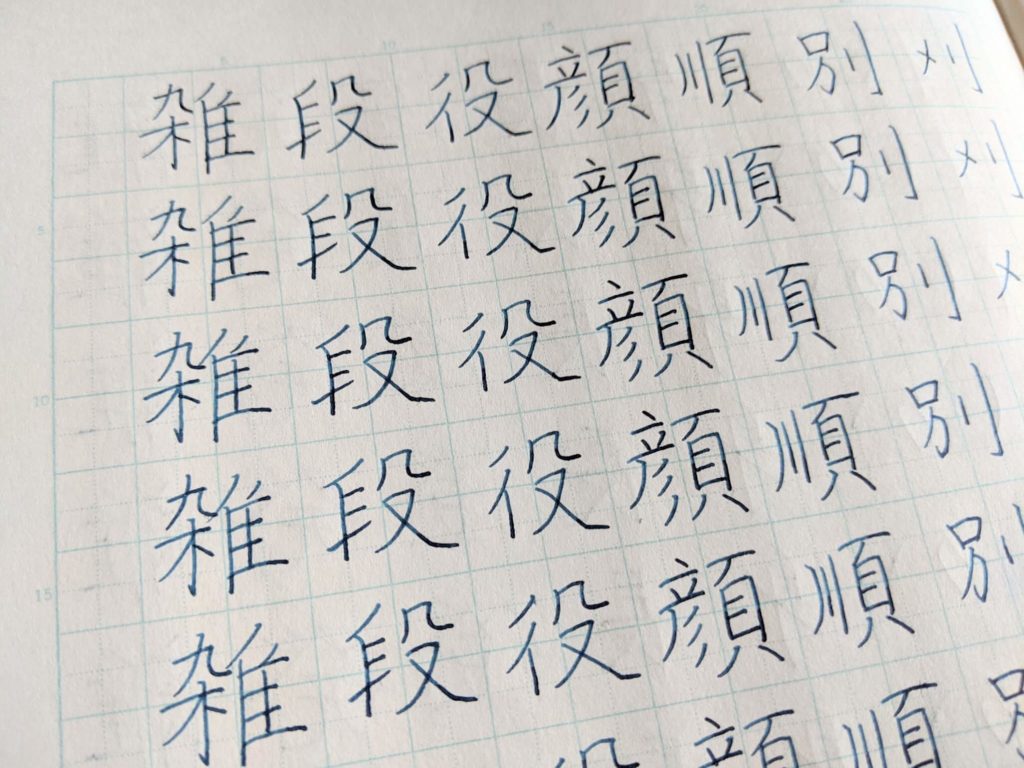 雑 段 役 顔 順 別 刈
雑 段 役 顔 順 別 刈
雑 段 役 顔 順 別
雑 段 役 顔 順 別
雑 段 役 顔 順 別
役 顔 順
5
10
15